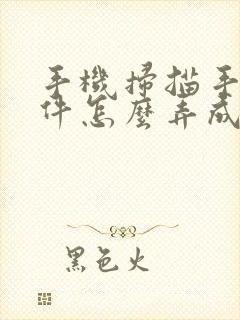 手機掃描手
件怎麼弄成
黑色火